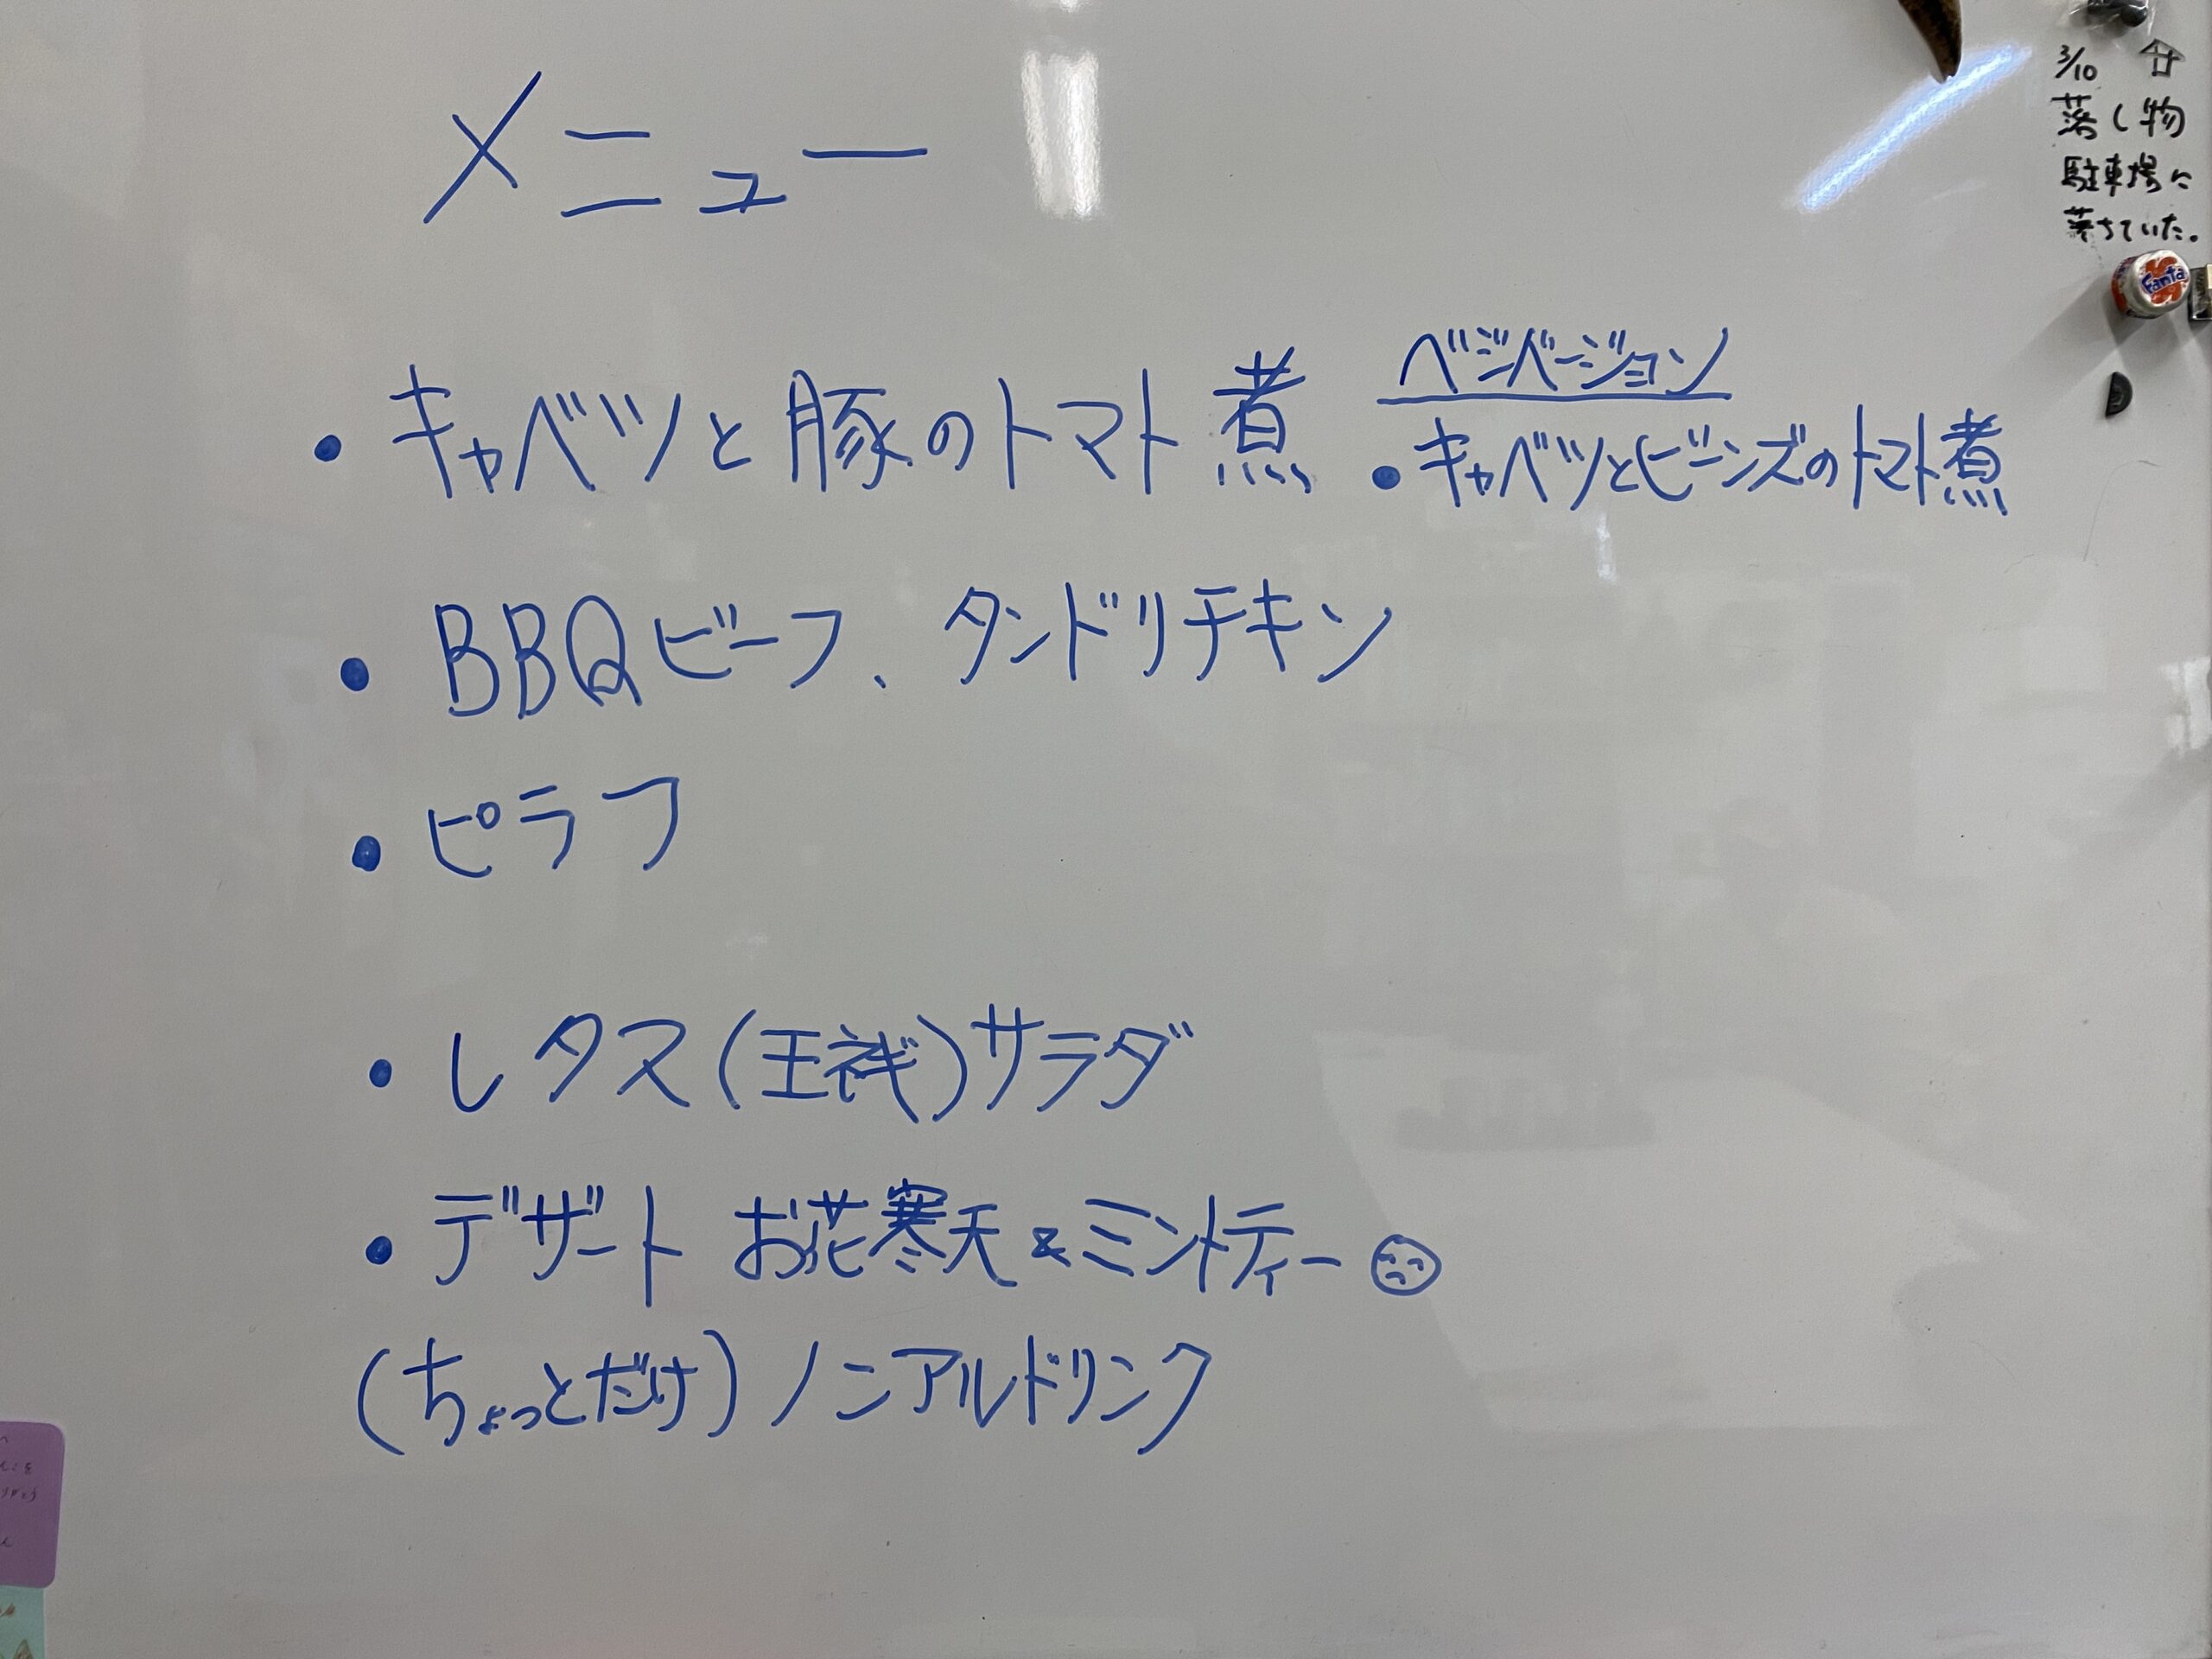 メニュー
・キャベツと豚のトマト煮
ベジバージョン
・キャベツとビーンズのトマト煮
・BBQビーフ、タンドリチキン
・ピラフ
・レタス(王祇)サラダ
・デザート お花寒天&ミントティー
(ちょっとだけ)ノンアルドリンク
3/10
落し物
駐車場に
落ちていた。
Fanta